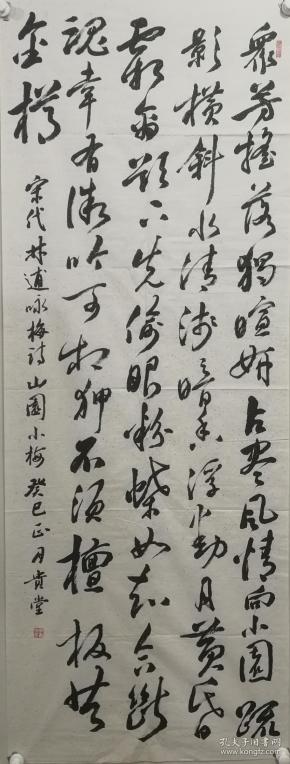 众芳摇落独暄妍占尽风情向小园疏
影横斜水清浅暗香浮动月黄昏
霜禽欲下先偷眼粉蝶如知合断
魂幸有微吟可相狎不须檀板共
金樽
宋代林逋咏梅诗山园小梅癸巳正月贵堂
孔夫子旧书网